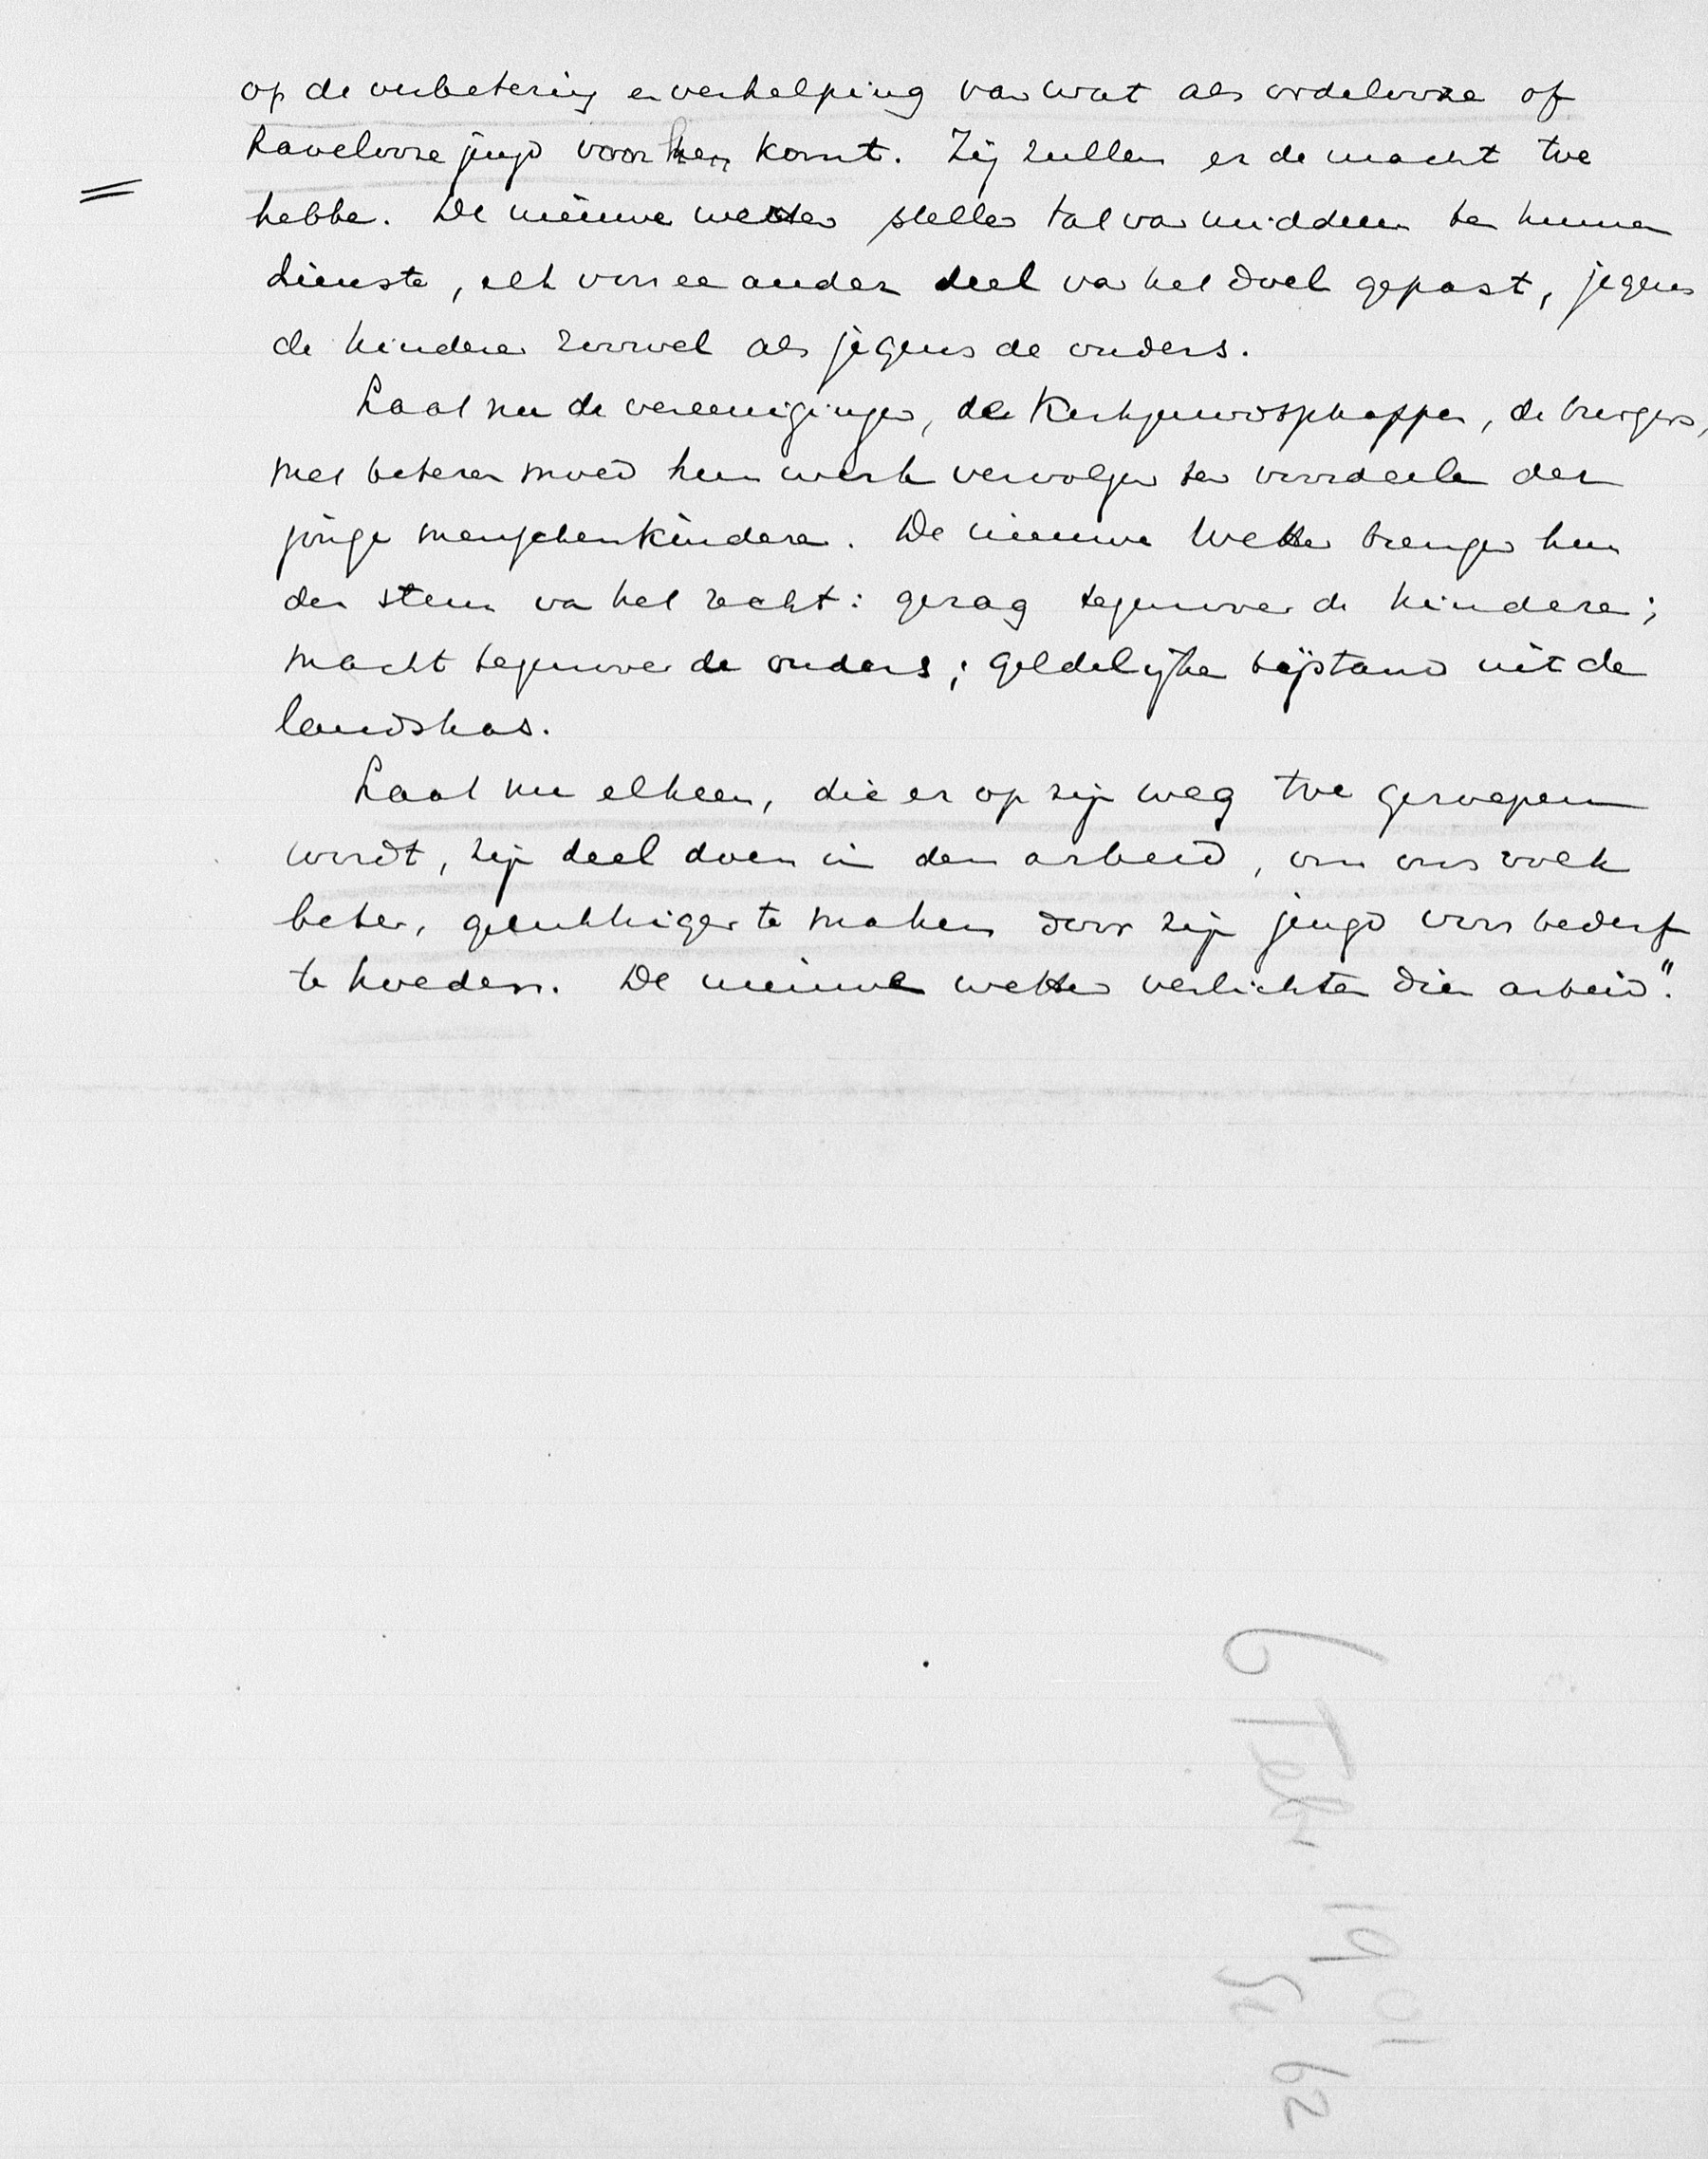 op de verbetering en verhelping van wat als ordelooze of
havelooze jeugd voor hen komt. Zij zullen er de macht toe
hebben. De nieuwe wetten stellen tal van middelen ten hunnen
dienste, elk voor een ander deel van het doel gepast, jegens
de kinderen zoowel als jegens de ouders.
Laat nu de vereenigingen, de Kerkgenootschappen, de burgers,
met beteren moed hun werk vervolgen ten voordeele der
jonge menschenkinderen. De nieuwe Wetten brengen hun
den steun van het recht: gezag tegenover de kinderen;
macht tegenover de ouders; geldelijke bijstand uit de
landskas.
Laat nu elkeen, die er op zijn weg toe geroepen
wordt, zijn deel doen in den arbeid, om ons volk
beter, gelukkiger te maken door zijn jeugd voor bederf
te hoeden. De nieuwe wetten verlichten dien arbeid."
6 Febr. 1901
62